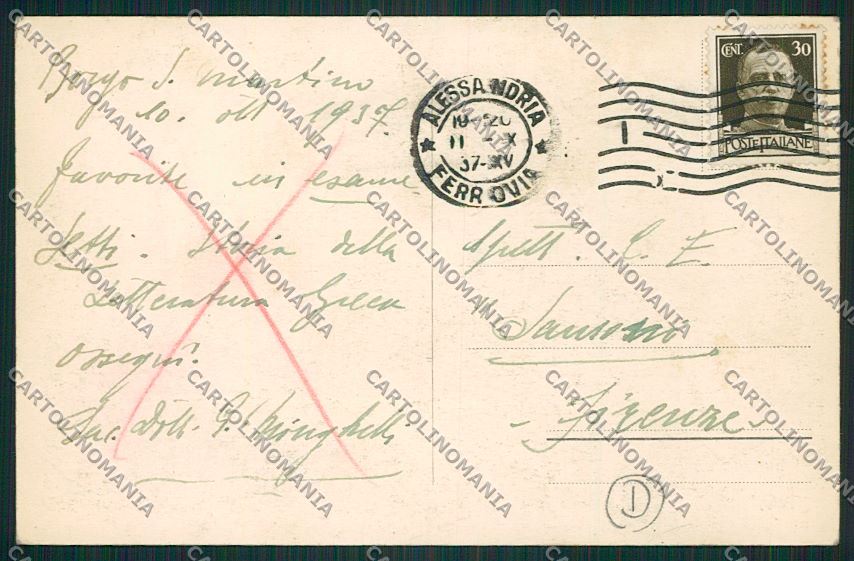 Borgo S. Martino
10. ott 1937.
favorite in esame
Setti. Storia della
Letteratura Greca
ossequi.
Sac. Dott. G.
ALESSANDRIA
FERROVIA
37-XV
CENT. 30
POSTE ITALIANE
Spett. C. E.
"Sansoni
- Firenze -
CARTOLINOMANIA